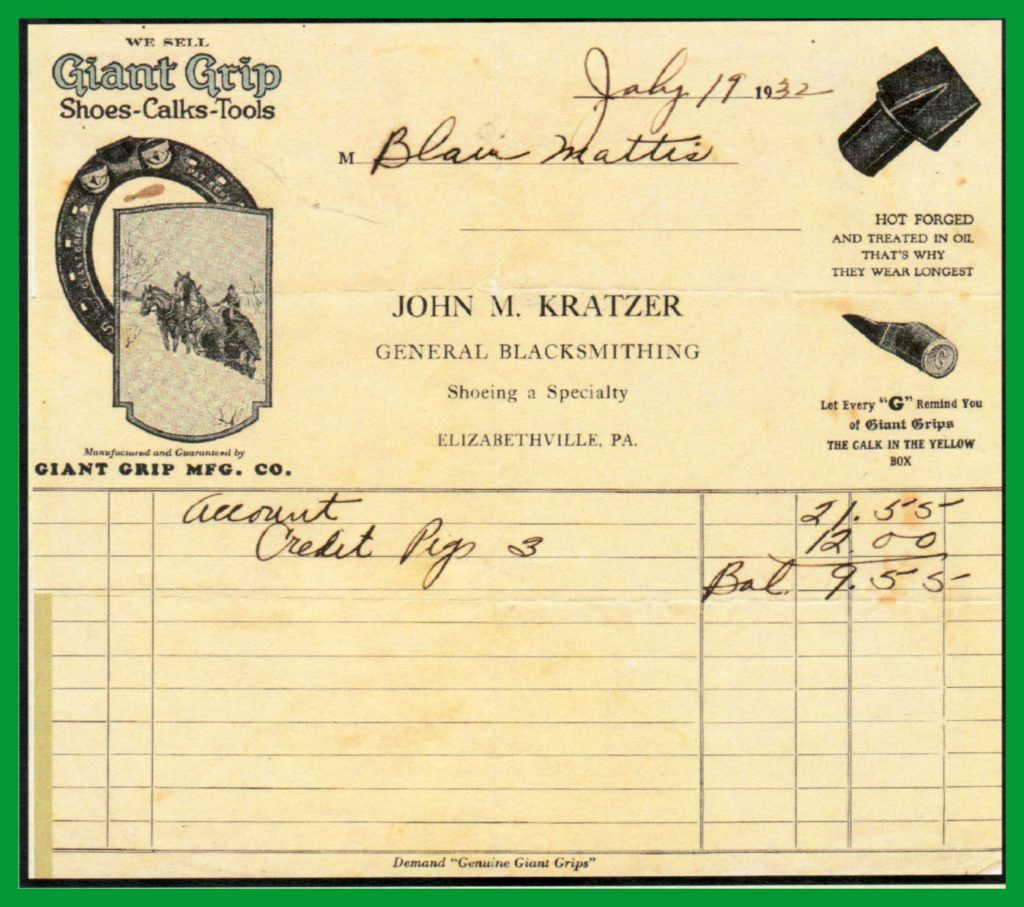 WE SELL
Giant Grip
Shoes-Calks-Tools
July 19 1932
M Blair Mattis
GIANT GRIP
HOT FORGED
AND TREATED IN OIL
THAT'S WHY
THEY WEAR LONGEST
JOHN M. KRATZER
GENERAL BLACKSMITHING
Shoeing a Specialty
ELIZABETHVILLE, PA.
G
Let Every "G" Remind You
of Giant Grips
THE CALK IN THE YELLOW
BOX
Manufactured and Guaranteed by
GIANT GRIP MFG. CO.
Account 21.55
Credit Pigs 3 12.00
Bal. 9.55
Demand "Genuine Giant Grips"